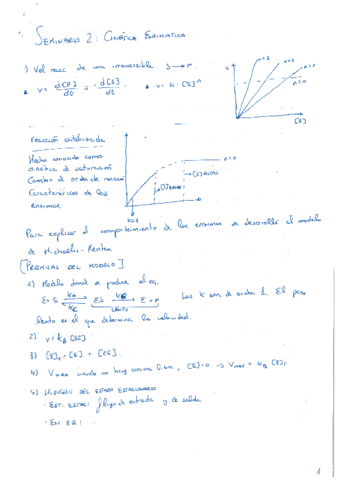 SEMINARIO 2: CINÉTICA ENZIMÁTICA
1) Vel reacc de una irreversible S → P
v = d[P]/dt = - d[S]/dt
v = k · [S]^n
v
n=2
n=1
n=0
[S]
reacción catalizada
Hecho conocido como
cinética de saturación
Cambio de orden de reacción
Características de las
enzimas
n=0
[S] ALTAS
n=1
Para explicar el comportamiento de las enzimas se desarrolló el modelo
de Michaelis-Menten
[PREMISAS DEL MODELO]
1) Modelo donde se produce el eq.
E+S ES E+P
LENTO
Las k son de orden 1. El paso
lento es el que determina la velocidad.
2) v = kB [ES]
3) [E]T = [E] + [ES]
4) Vmax cuando no hay enzima libre, [E]=0 → Vmax = kB [E]T
5) HIPÓTESIS DEL ESTADO ESTACIONARIO
- EST. ESTAC: flujo de entrada y de salida
- EN EQ:
1